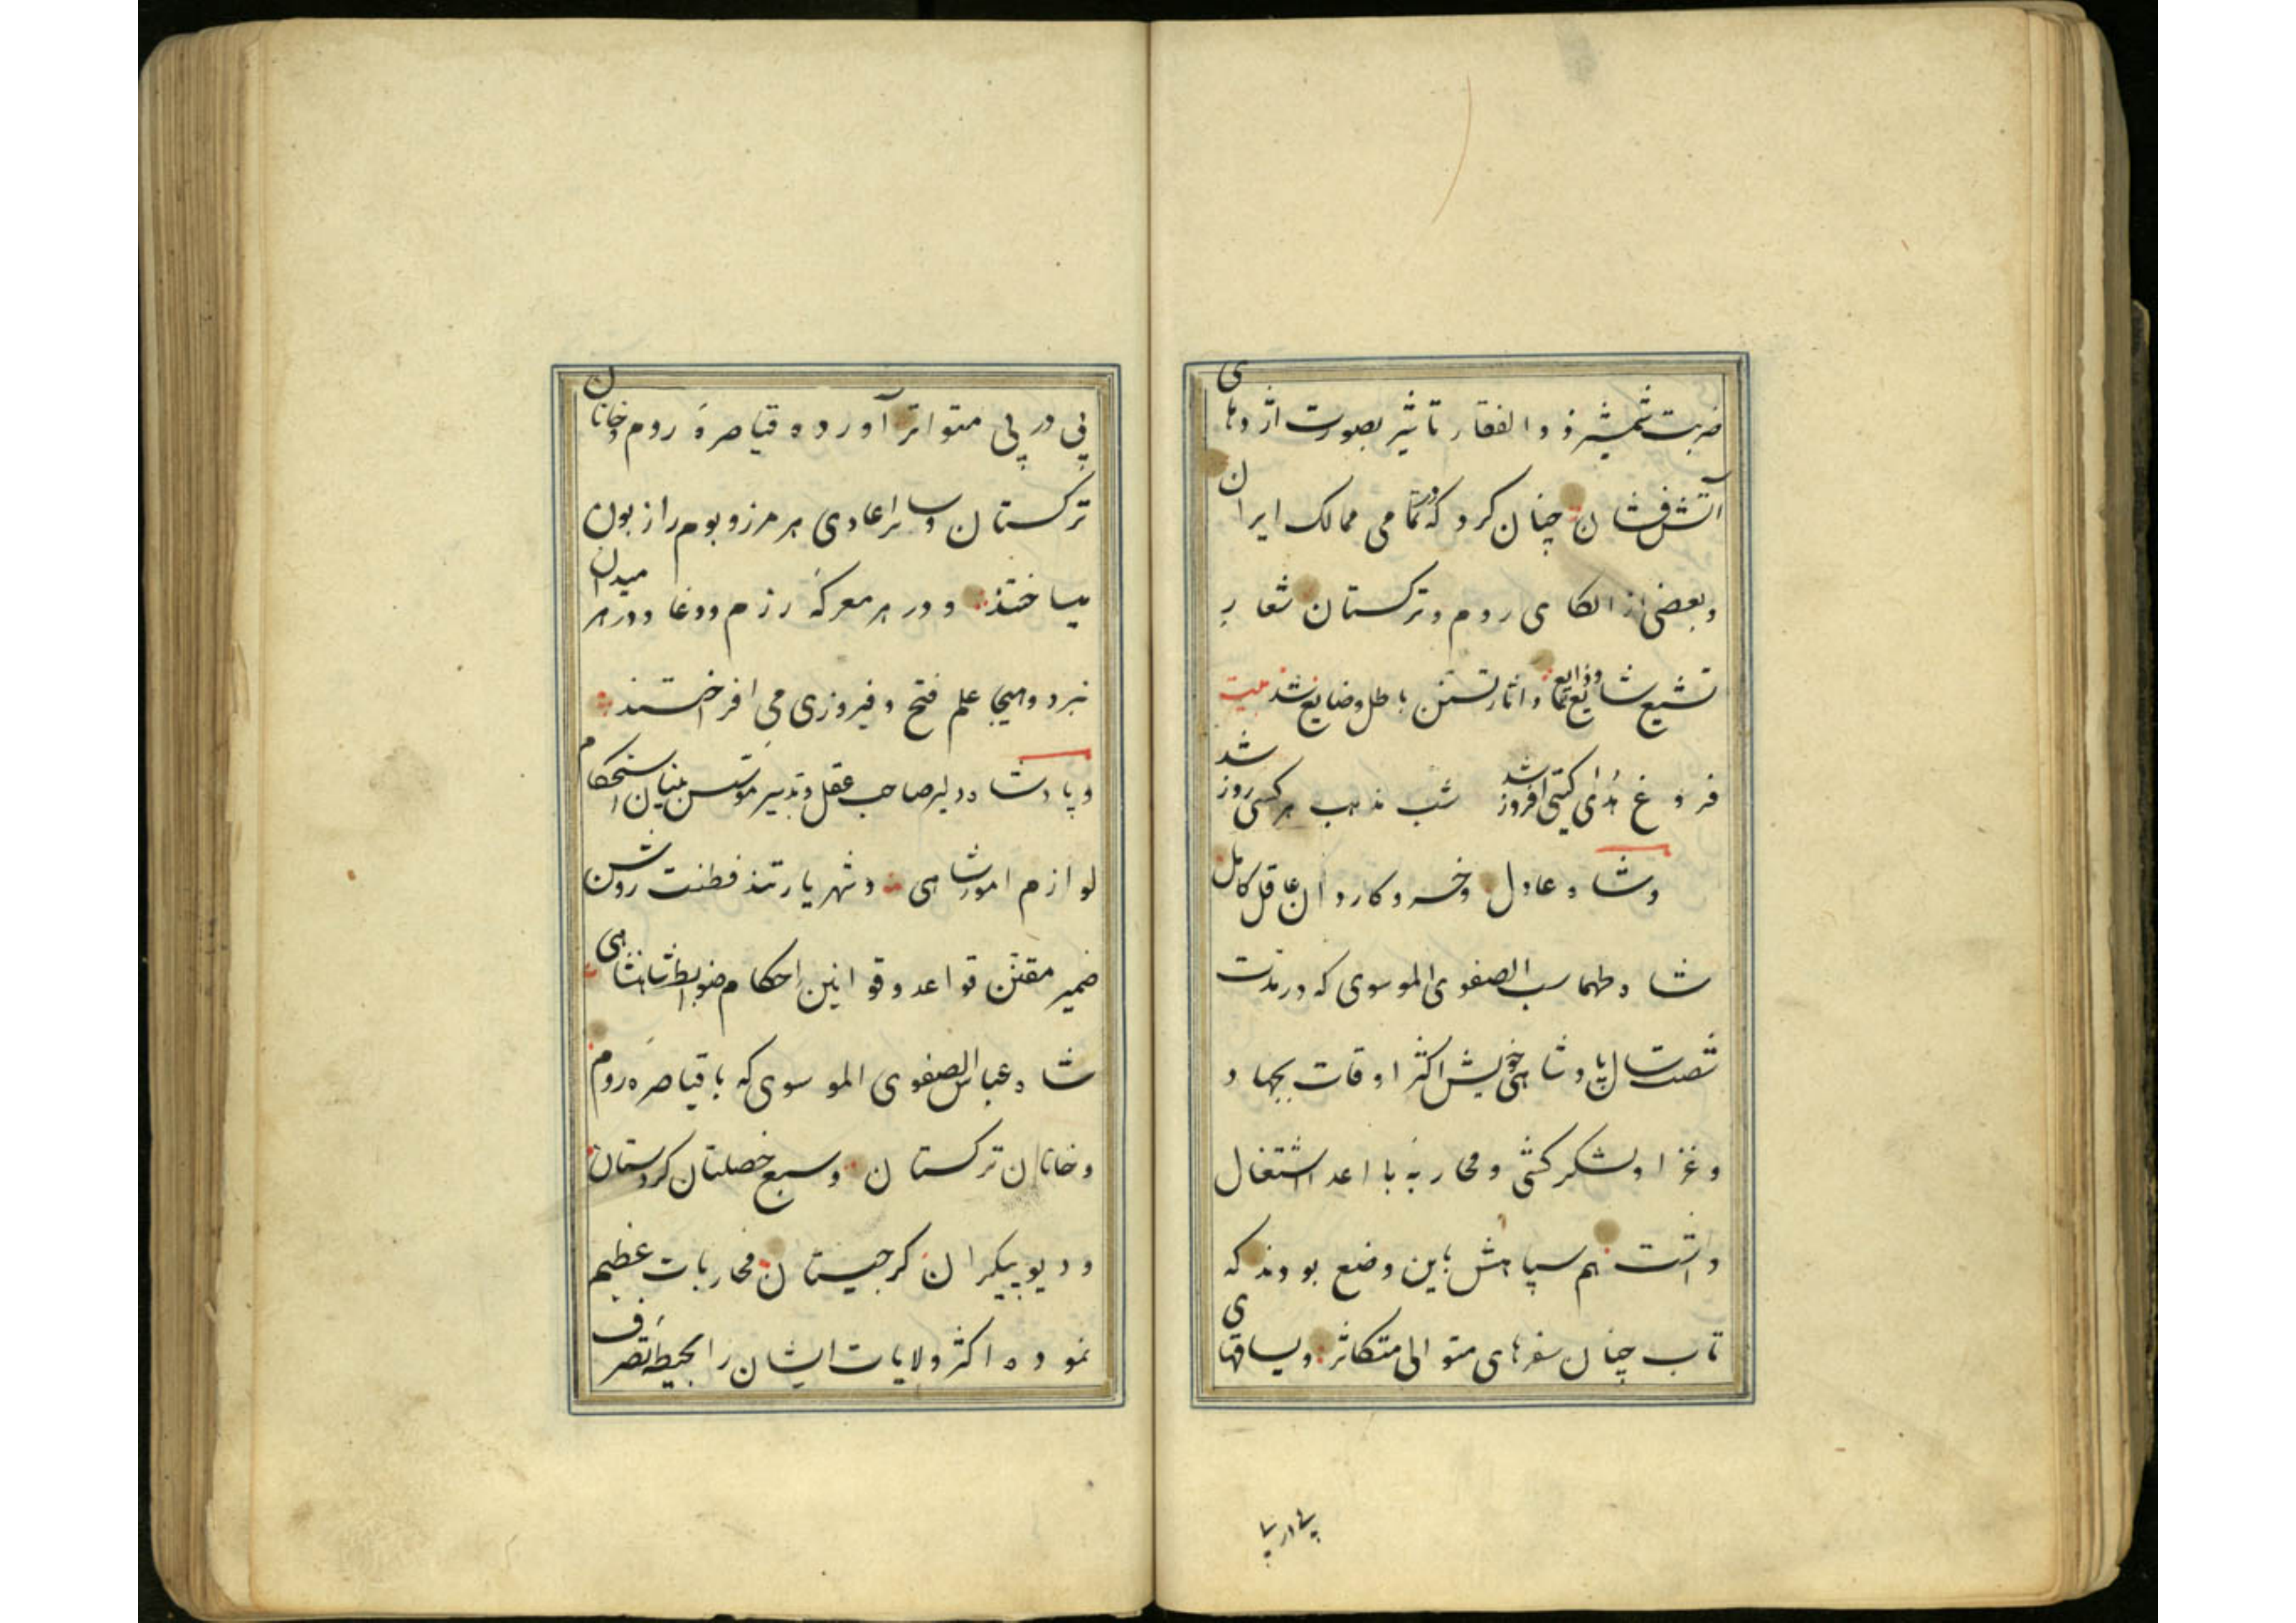 ضربت شمشیر ذو الفقار تاثیر بصورت اژدهای
آتش فشان چنان کرد که در تمامی ممالک ایران
و بعضی از الکای روم و ترکستان شعار
تشیع شایع و ذایع و آثار تسنن باطل و ضایع شد بیت
فروغ هدای گیتی افروز شد شب مذهب هر کسی روز شد
و شاه عادل و خسرو کاردان عاقل کامل
شاه طهماسب الصفوی الموسوی که در مدت
شصت سال پادشاهی خویش اکثر اوقات بجهاد
و غزا و لشکر کشی و محاربه با اعدا اشتغال
داشتند هم سپاهش باین وضع بودند که
تاب چنان سفرهای متوالی متکاثر و یساقهای
پی در پی
پی در پی متواتر آورده قیاصرهٔ روم و خانان
ترکستان و سایر اعادی هر مرز و بوم را زبون
میساختند و در هر معرکه رزم و وغا و در هر میدان
نبرد و هیجا علم فتح و فیروزی می افراختند
و پادشاه دلیر صاحب عقل و تدبیر مؤسس بنیان استحکام
لوازم امور شاهی و شهریار تند فطنت روشن
ضمیر مقنن قواعد و قوانین احکام ضوابط شاهنشاهی
شاه عباس الصفوی الموسوی که با قیاصره روم
و خانان ترکستان و سبع خصلتان کردستان
و دیو پیکران گرجیستان محاربات عظیم
نموده اکثر ولایات ایشان را بحیطه تصرف